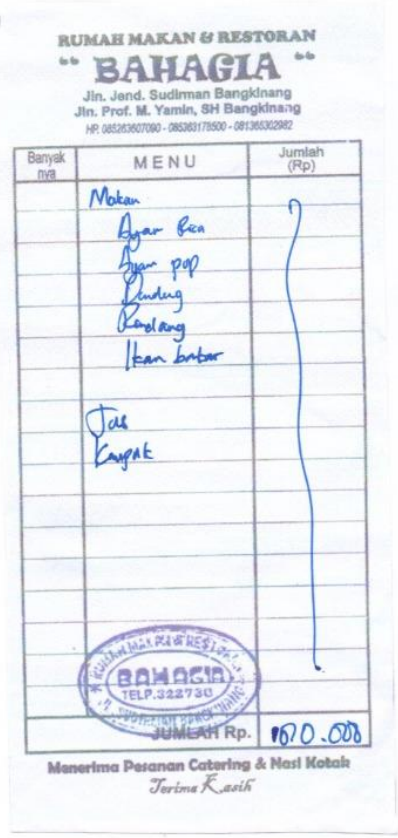 RUMAH MAKAN & RESTORAN
" BAHAGIA "
Jln. Jend. Sudirman Bangkinang
Jln. Prof. M. Yamin, SH Bangkinang
HP. 085263607090 - 085363178500 - 081365302982
Banyak nya MENU Jumlah (Rp)
Makan
Ayam
Ayam pop
Dendeng
Rendang
Ikan bakar
Jus
Kerupuk
RUMAH MAKAN & RESTORAN
BAHAGIA
TELP.322730
JUMLAH Rp.
Menerima Pesanan Catering & Nasi Kotak
Terima Kasih